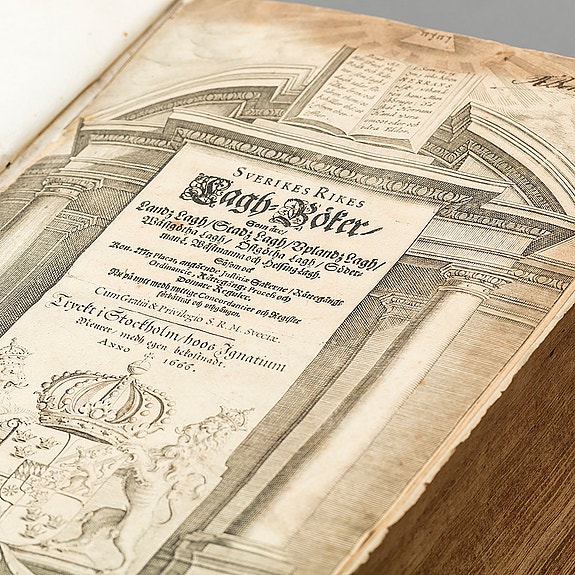 SVERIKES RIKES
Lagh-Böker/
Som äre/
Landz Lagh/ Stadz Lagh/ Vplandz Lagh/
Wäsgötha Lagh/ Östgötha Lagh/ Söder-
man-L. Wästmanna och Helsing-lagh.
Såsom och
Kon. May:tz Placat, angående Justitiæ Sakerne/ Rättegångz
Ordinancie, Rättegångz Process och
Domare Reguler.
Nu på nytt medh nödige Concordantier och Register
förbättrat och vthgången.
Cum Gratiâ & Privilegio S. R. M. Sveciæ.
Tryckt i Stockholm/ hoos Ignatium
Meurer/ medh egen bekostnadt.
ANNO 1666.